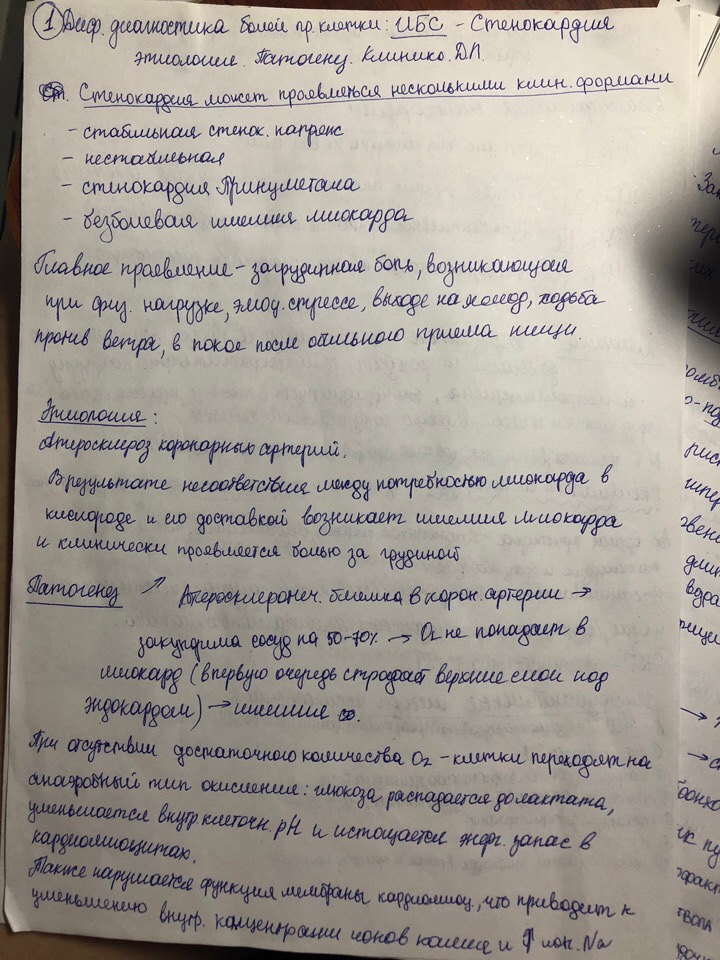 ① Диф. диагностика болей гр. клетки: ИБС - Стенокардия
этиология. Патогенез. Клиника. ДЛ.
Стенокардия может проявляться несколькими клин. формами
- стабильная стенок. напряж
- нестабильная
- стенокардия Принцметала
- безболевая ишемия миокарда
Главное проявление - загрудинная боль, возникающая
при физ. нагрузке, эмоц. стрессе, выходе на холод, ходьба
против ветра, в покое после обильного приема пищи.
Этиология:
Атеросклероз коронарных артерий.
В результате несоответствия между потребностью миокарда в
кислороде и его доставкой возникает ишемия миокарда
и клинически проявляется болью за грудиной
Патогенез ↗ Атеросклеротич. бляшка в корон. артерии →
закупорила сосуд на 50-70% → O₂ не попадает в
миокард (в первую очередь страдает верхние слои под
эндокардом) → ишемия
При отсутствии достаточного количества O₂ - клетки переходят на
анаэробный тип окисления: глюкоза распадается до лактата,
уменьшается внутриклеточн. pH и истощается энерг. запас в
кардиомиоцитах.
Также нарушается функция мембраны кардиомиоц., что приводит к
уменьшению внутр. концентрации ионов калия и ↑ ион. Na